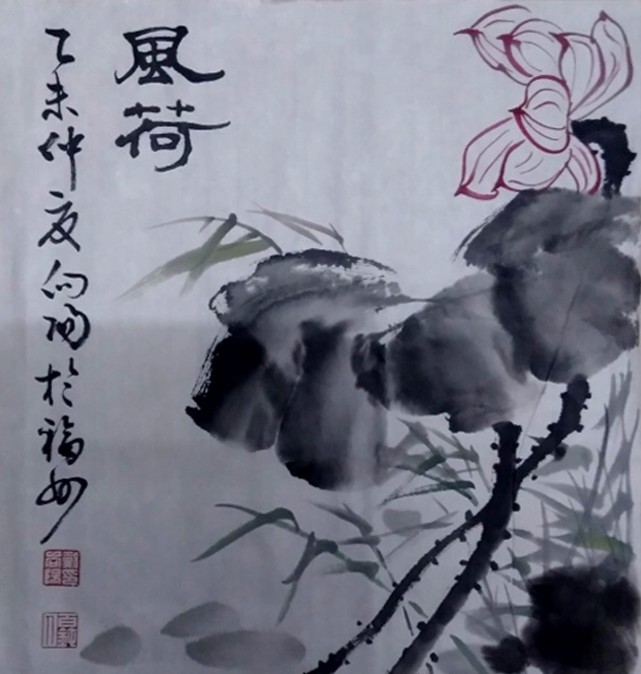 風荷
乙未仲夏向陽於福州